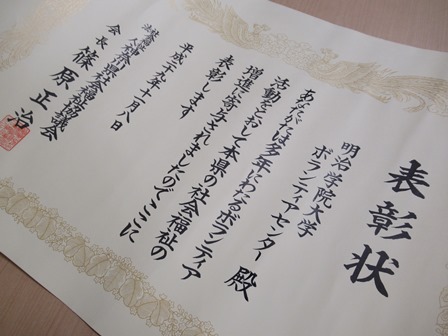 表彰状
明治学院大学
ボランティアセンター 殿
あなたがたは多年にわたるボランティア
活動をとおして本県の社会福祉の
増進に寄与されましたのでここに
表彰します
平成十九年十一月八日
社会福祉法人神奈川県社会福祉協議会
会長 篠原正治